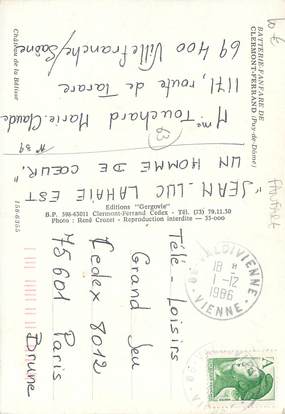 BATTERIE-FANFARE DE
CLERMONT-FERRAND (Puy-de-Dôme)
Château de la Bâtisse
158-6355
Mme Touchard Marie-Claude
1171, route de Tarare
69 400 Villefranche/Saône
63
N° 39
"JEAN-LUC LAHAIE EST
UN HOMME DE CŒUR."
FANFARE
Editions "Gergovie"
B.P. 598-63011 Clermont-Ferrand Cedex - Tél. (73) 79.11.50
Photo : René Crozet - Reproduction interdite - 33-000
VALDIVIENNE
18 H
1-12
1986
VIENNE
Télé-Loisirs
Grand Jeu
Cedex 8012
75601 Paris
Brune